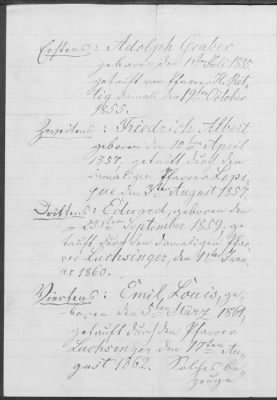 Erstens: Adolph Graber
geboren den 1ten Juli 1855
getauft von Pfarrer H. Ret-
tig damals den 19ten October
1855.
Zweitens: Friedrich Albert
geboren den 10ten April
1857, getauft durch den
damaligen Pfarrer
den 3ten August 1857.
Drittens: Eduard, geboren den
September 1859, ge-
tauft durch den damaligen Pfar-
rer Luchsinger, den 1ten Janu-
ar 1860.
Viertens: Emil Louis, ge-
boren den 5ten März 1861,
getauft durch den Pfarrer
Luchsinger, den 17ten Au-
gust 1862. Solches be-
zeuge